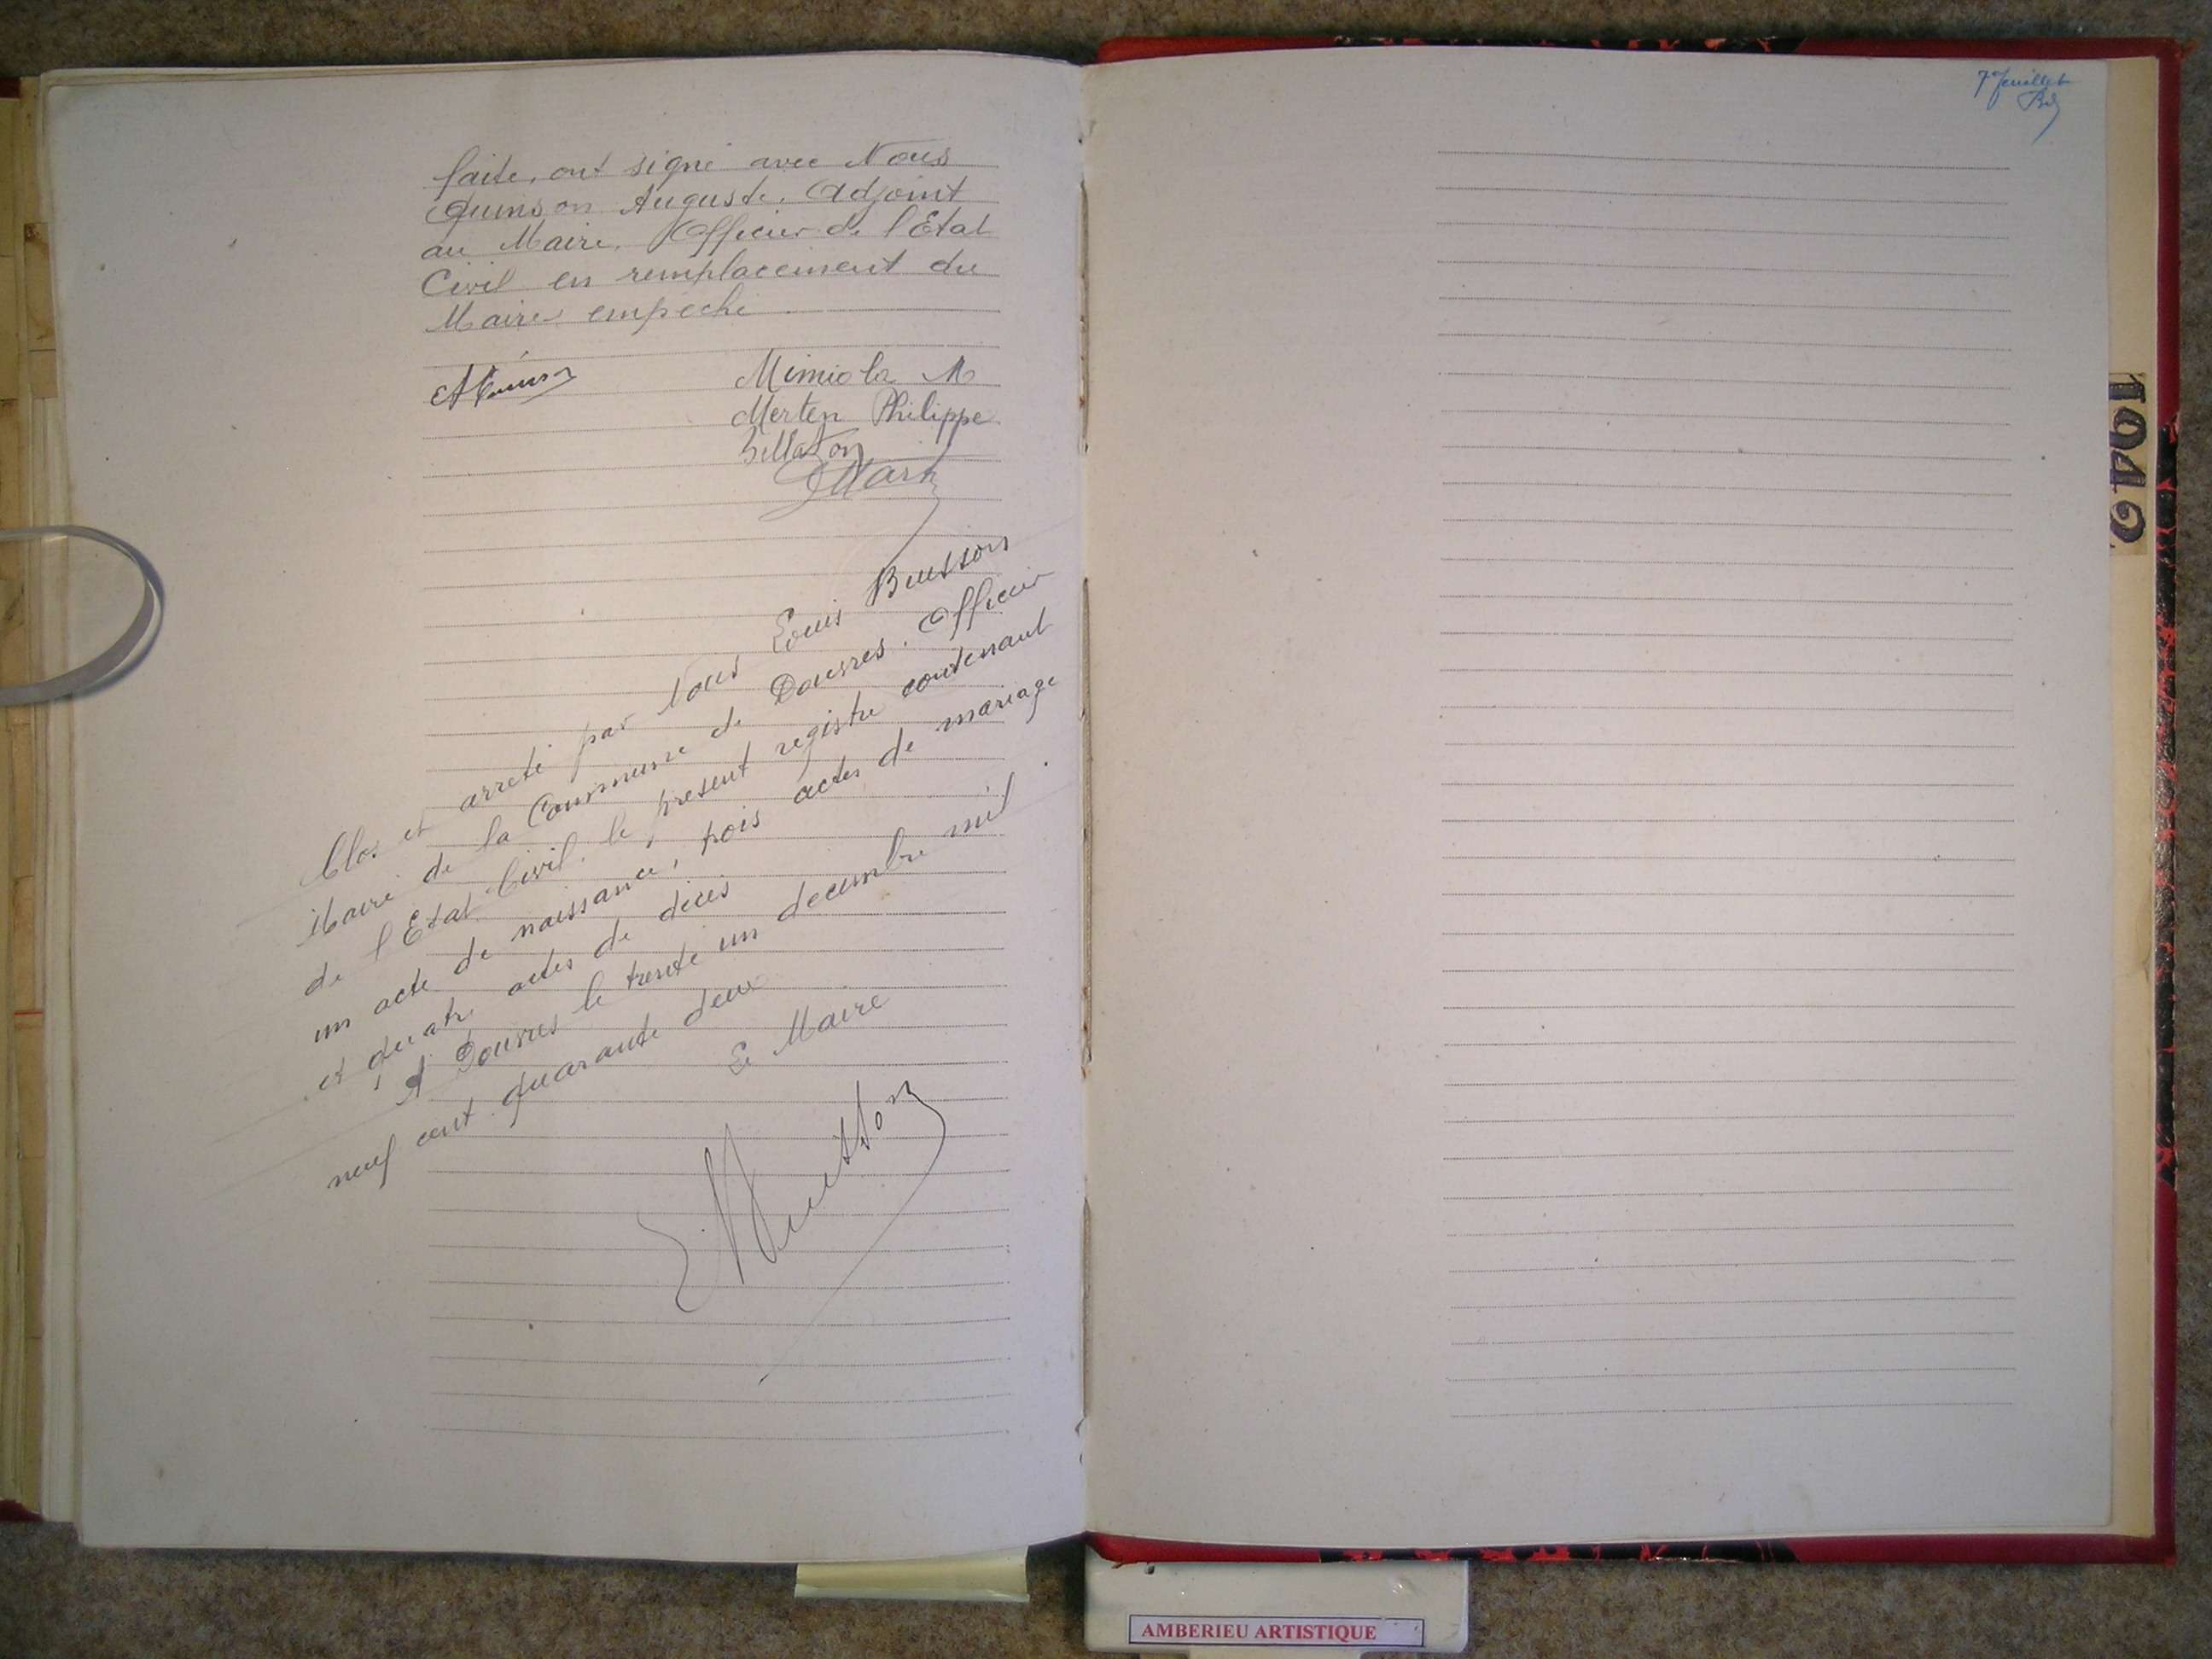 faite, ont signé avec Nous
Quinson Auguste. Adjoint
au Maire. Officier de l'Etat
Civil en remplacement du
Maire empeché
AQuinson
Mimiola M
Merten Philippe
Billaton
Clos et arreté par Nous Louis Buisson
Maire de la Commune de Douvres. Officier
de l'Etat Civil. le present registre contenant
un acte de naissance, trois actes de mariage
et quatre actes de décès
A Douvres le trente un decembre mil
neuf cent quarante deux
Le Maire
L Buisson
7e feuillet
1942
AMBERIEU ARTISTIQUE